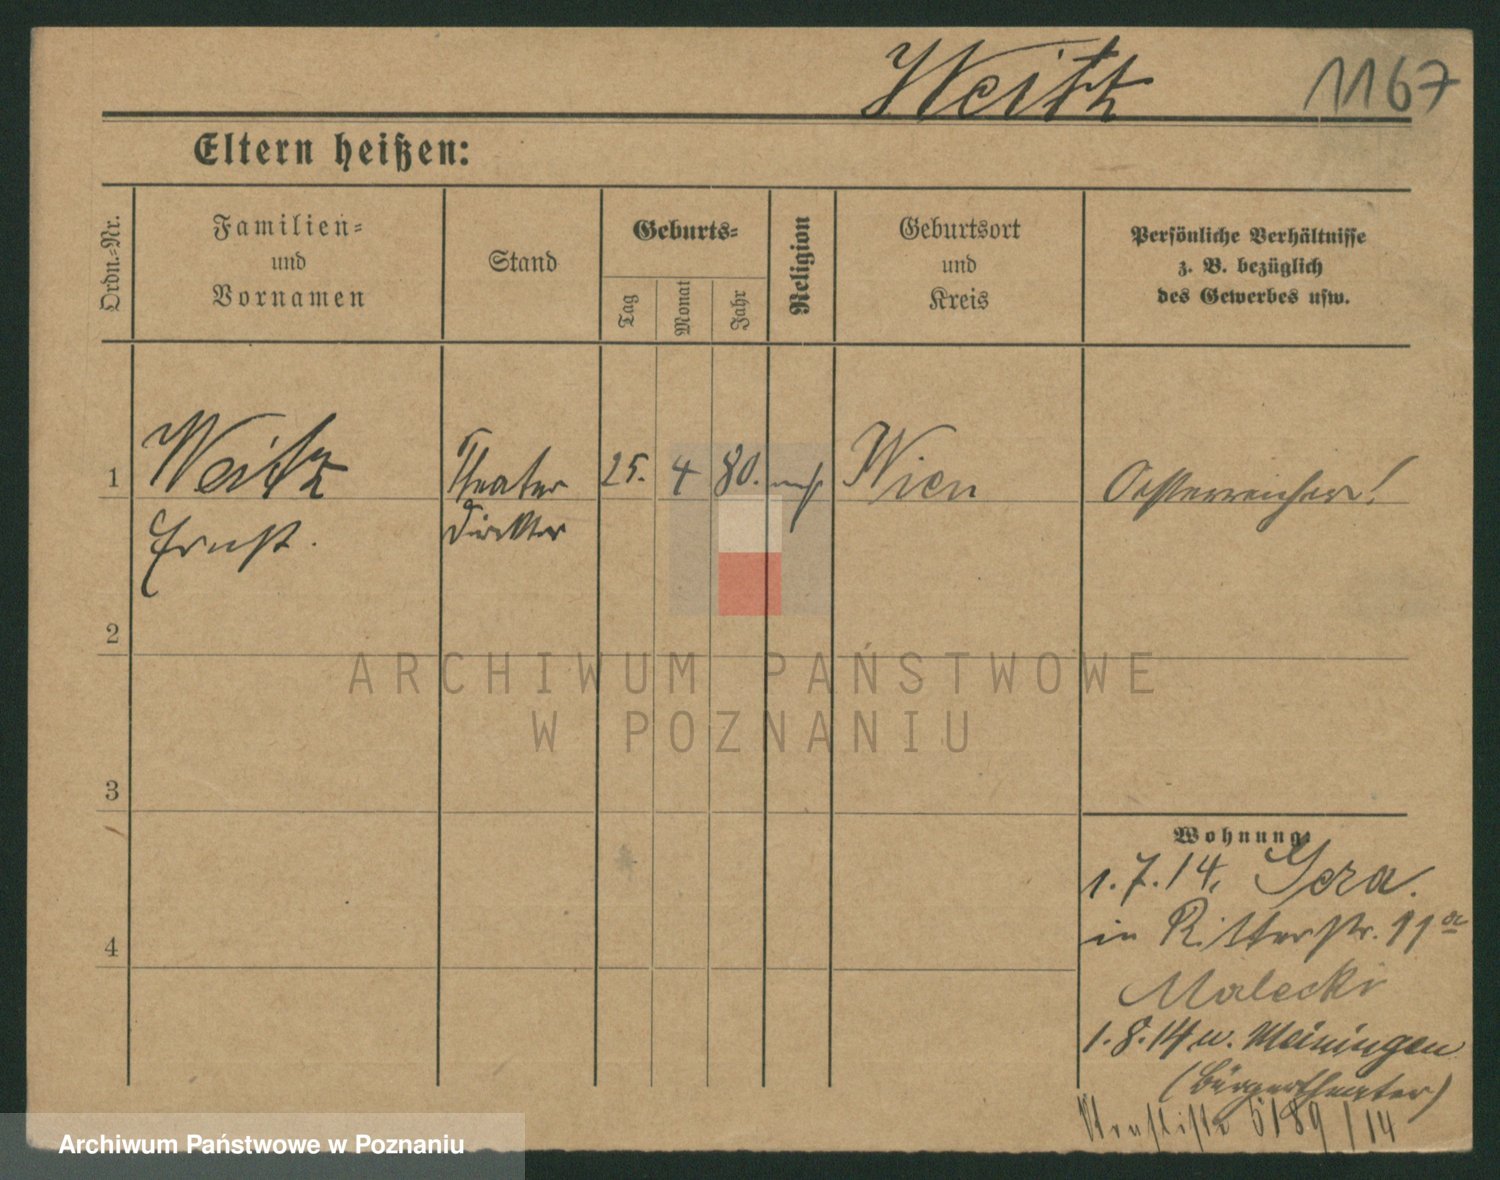 Weitz
1167
Eltern heißen:
Ordn.-Nr.
Familien-
und
Vornamen
Stand
Geburts-
Tag
Monat
Jahr
Religion
Geburtsort
und
Kreis
Persönliche Verhältnisse
z. B. bezüglich
des Gewerbes usw.
1 Weitz Theater 25. 4 80. Wien Oesterreicher!
Ernst. Direktor
2
3
4
Wohnung
1. 7. 14. Gera.
in Ritterstr. 11a
Malecki
1. 8. 14 n. Meiningen
(Bürgertheater)
5189/14
ARCHIWUM PAŃSTWOWE
W POZNANIU
Archiwum Państwowe w Poznaniu